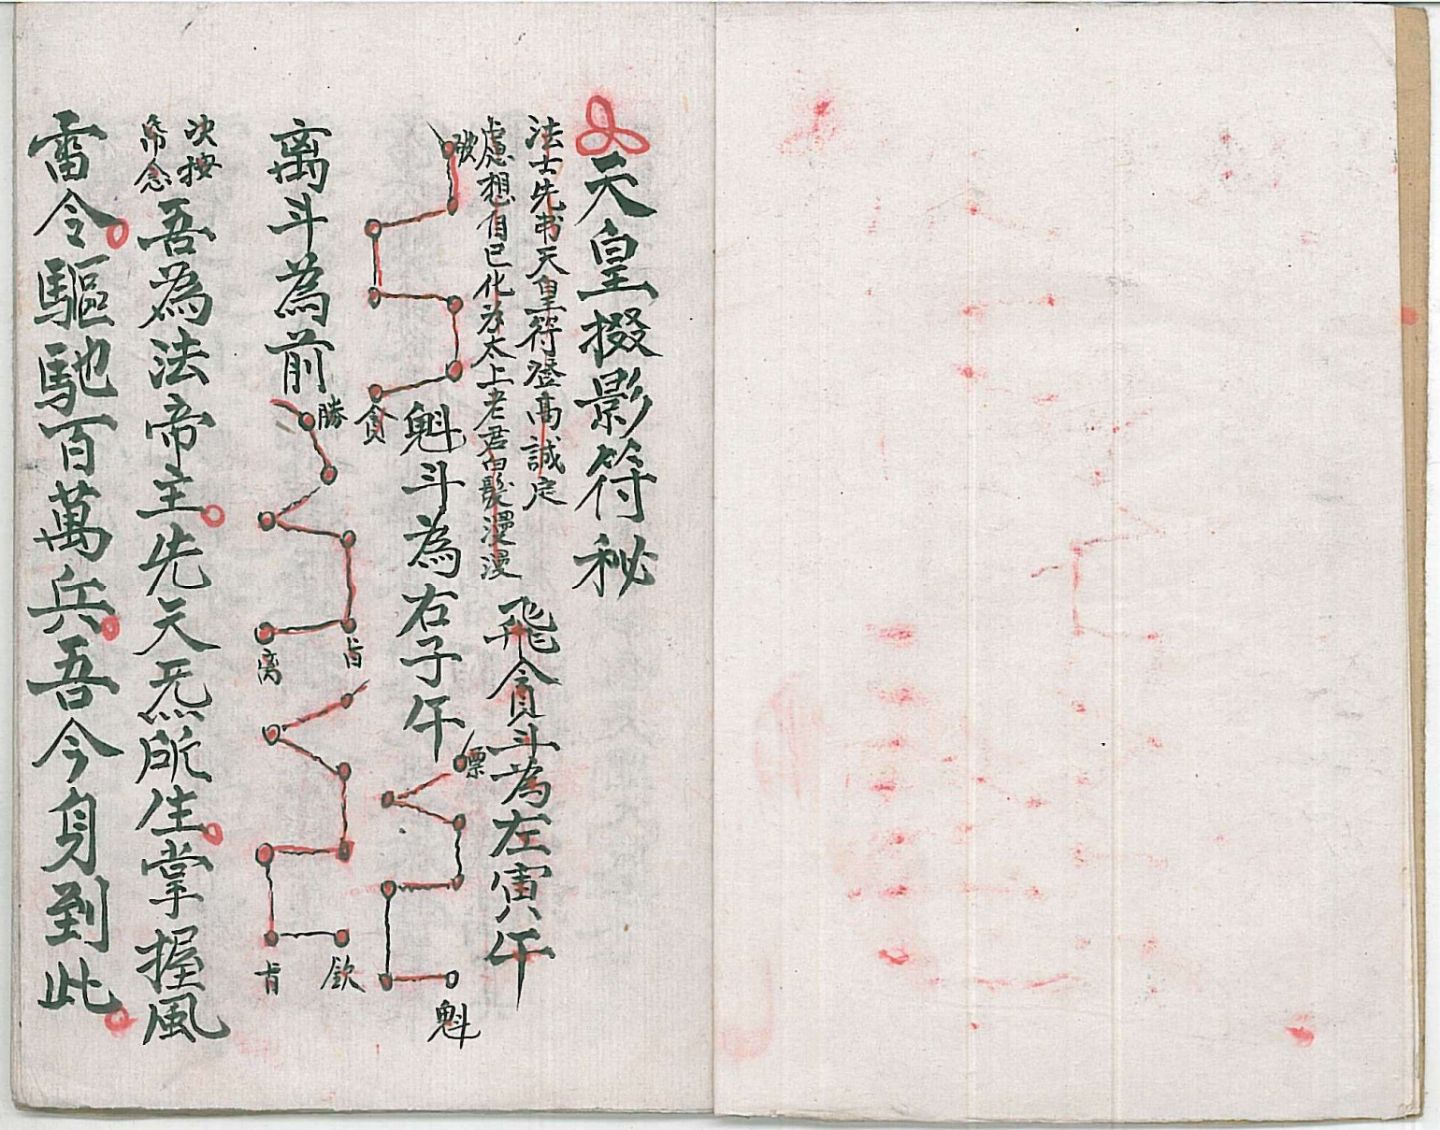 天皇掇影符秘
法士先书天皇符登高誠定
慮想自已化为太上老君白髮漫漫
飛貪斗為左寅午
破
貪
魁斗為右子午
標
魁
离斗為前
勝
肯
离
欽
肯
次按
帝念
吾為法帝主先天炁所生掌握風
雷令驅馳百萬兵吾今身到此